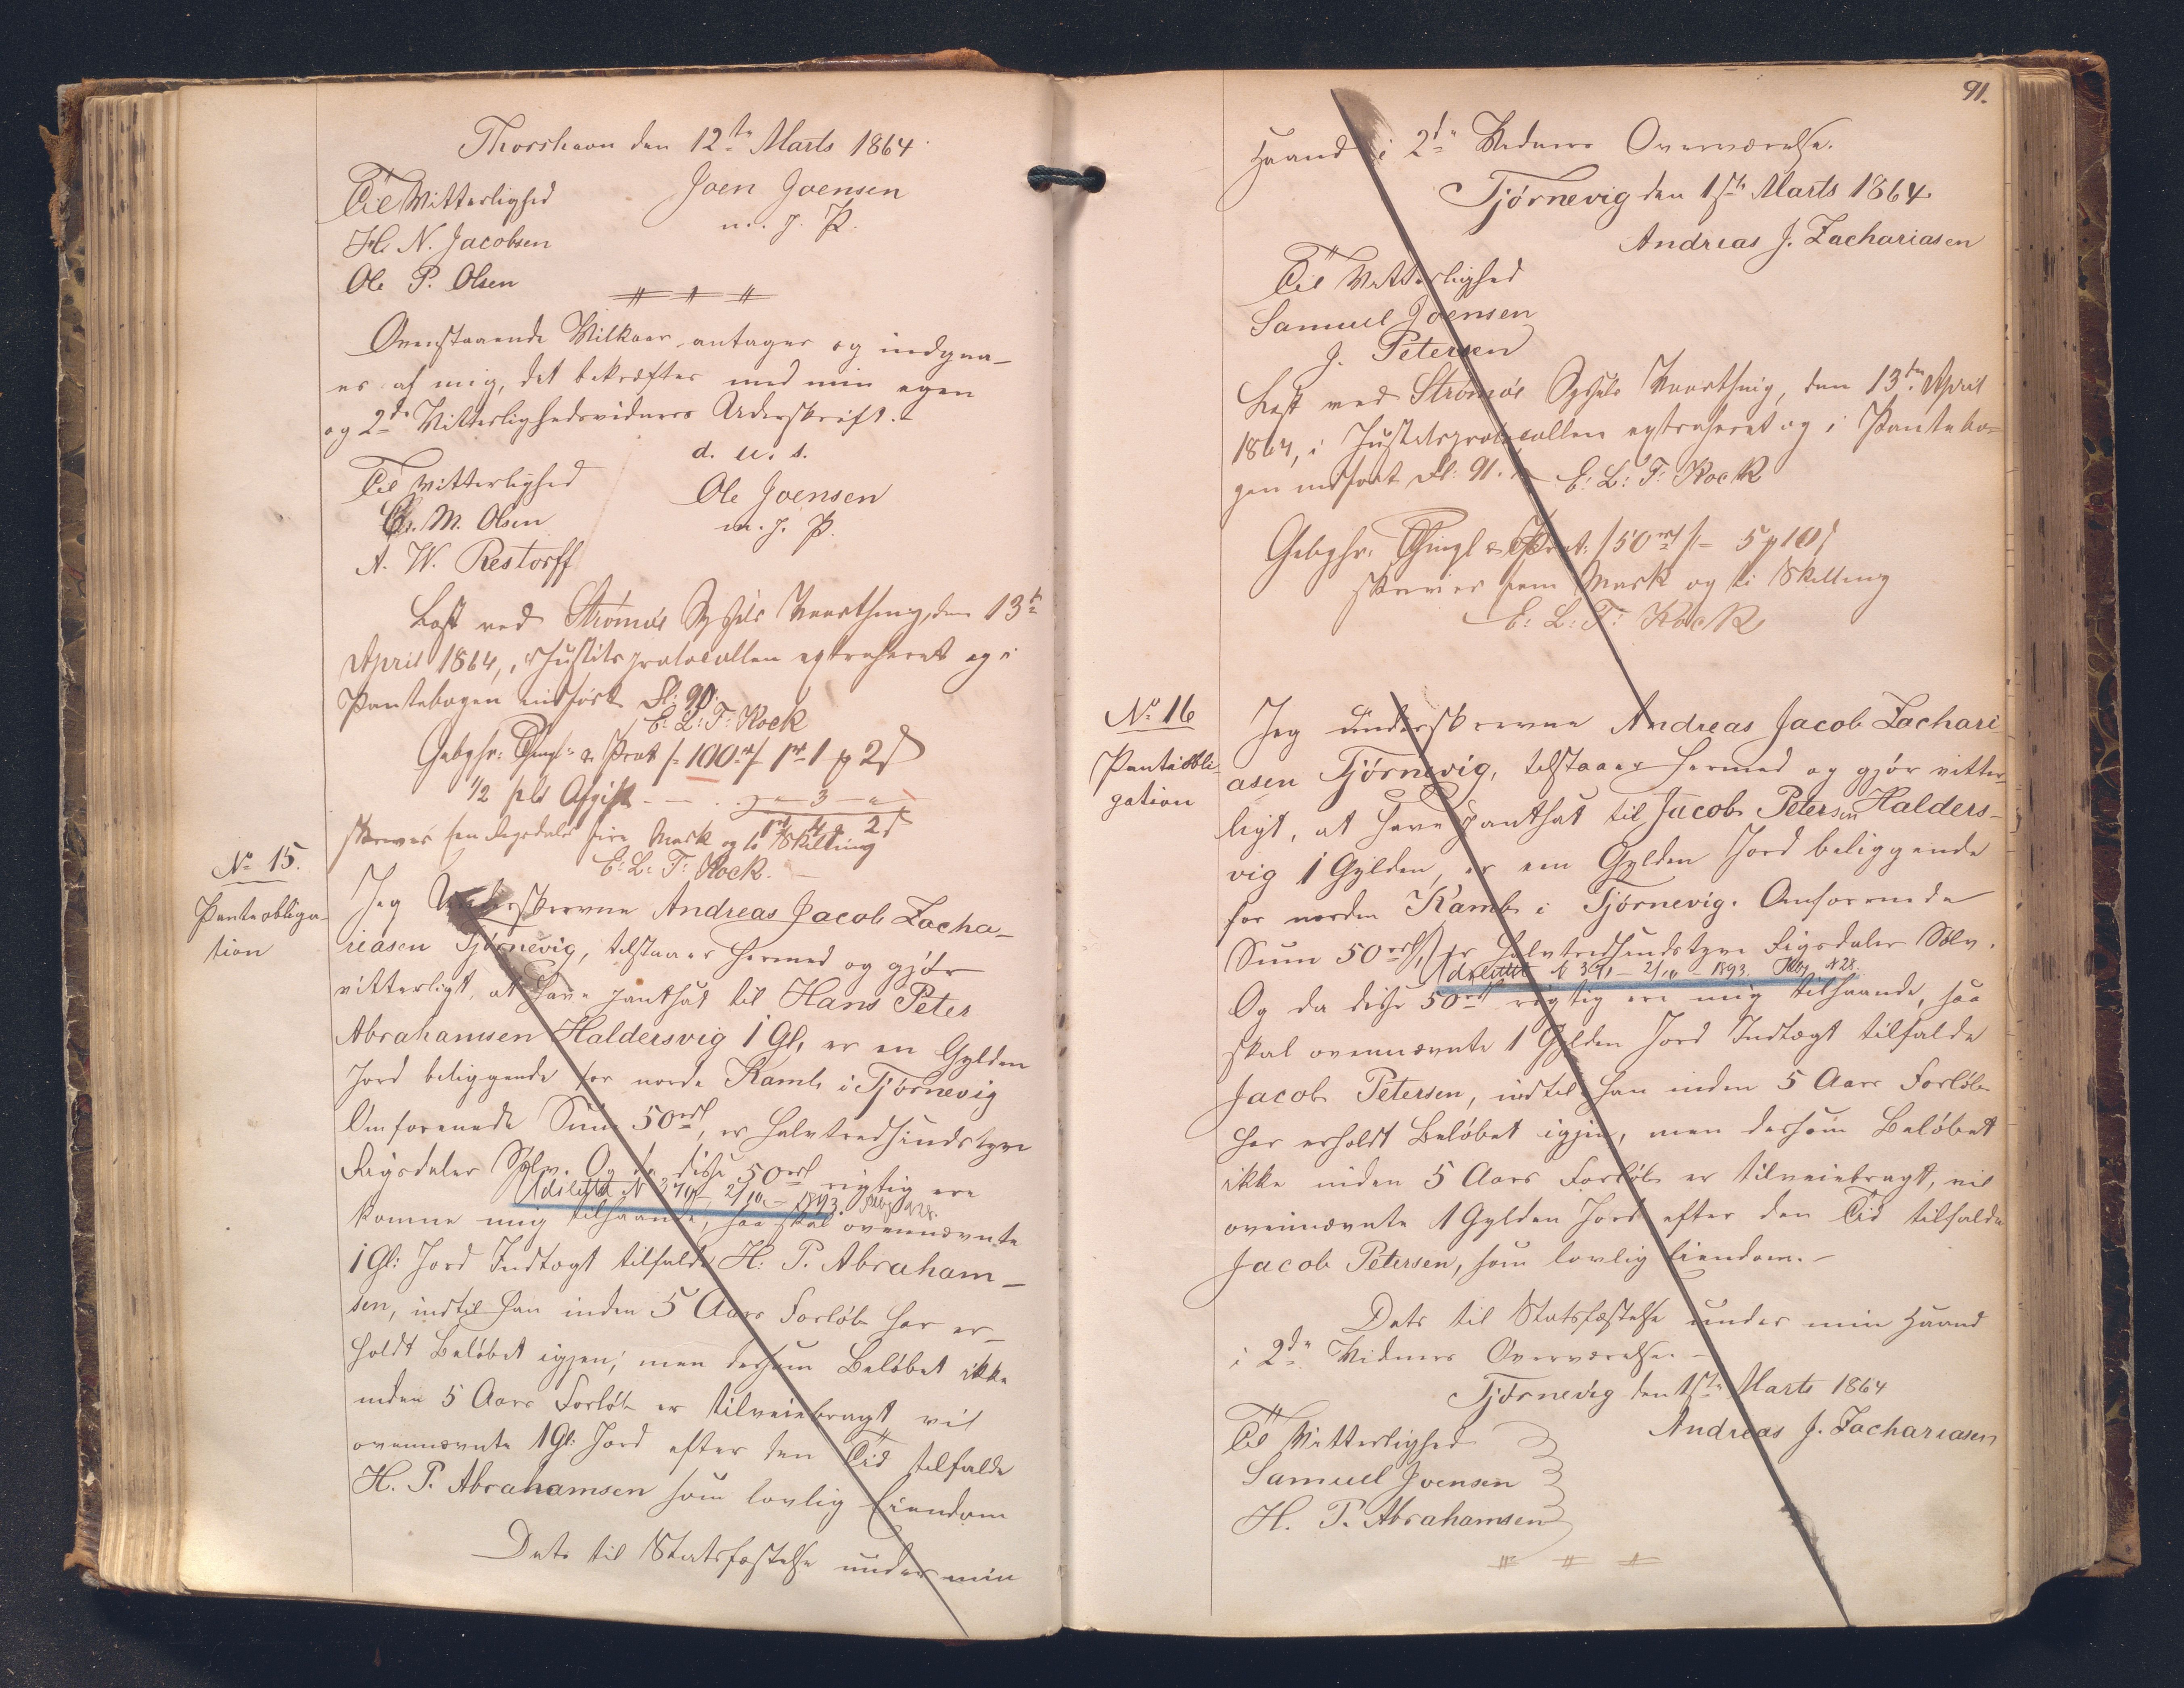 Thorshavn den 12te Marts 1864.
Til Vitterlighed
Joen Joensen
m. f. P.
H. N. Jacobsen
Ole P. Olsen
Ovenstaaende Vilkaar antages og indgaa-
es af mig, det bekræftes med min egen
og 2de Vitterlighedsvidners Underskrift.
d. u. s.
Til Vitterlighed
Ole Joensen
m. f. P.
M. Olsen
A. W. Restorff
Læst ved Strømøe Syssels Vaarthing, den 13de
April 1864, i Justitsprotocollen extraheret og i
Pantebogen indført Fol: 90.
E: L: T: Kock
Gebyhr: Thingl. & Prot. /: 100rd :/ 1rd 1 2
1/2 pCt Afgift - - - 3 -
1rd 4 2
skriver een Rigsdaler fire Mark og to Skilling
E: L: T: Kock.
No 15.
Panteobliga-
tion
Jeg Underskrevne Andreas Jacob Zacha-
riasen Tjørnevig, tilstaaer hermed og gjør
vitterligt, at have pantsat til Hans Peter
Abrahamsen Haldersvig 1 Gl, er en Gylden
Jord beliggende for norde Kamb i Tjørnevig
Omforenede Sum 50rd, er halvtredsindstyve
Rigsdaler Sølv. Og da disse 50rd rigtig ere
Udslettet N 370 - 2/10 - 1893.
komne mig tilhaande, saa skal ovennævnte
1 Gl: Jord Indtægt tilfalde H: P. Abraham-
sen, indtil han inden 5 Aars Forløb har er-
holdt Beløbet igjen; men dersom Beløbet ikke
inden 5 Aars Forløb er tilveiebragt, vil
ovennævnte 1 Gl: Jord efter den Tid tilfalde
H. P. Abrahamsen som lovlig Eiendom
Dets til Stadfæstelse under min
91.
Haand i 2de Vidners Overværelse.
Tjørnevig den 1ste Marts 1864
Andreas J. Zachariasen
Til Vitterlighed
Samuel Joensen
J. Petersen
Læst ved Strømøe Syssels Vaarthing, den 13de April
1864, i Justitsprotocollen extraheret og i Pantebo-
gen indført Fol: 91.
E: L: T: Kock
Gebyhr: Thingl & Prot. /: 50rd :/ = 5 10
skriver fem Mark og ti Skilling
E: L: T: Kock
No 16
Panteobli-
gation
Jeg underskrevne Andreas Jacob Zachari
asen Tjørnevig, tilstaaer hermed og gjør vitter-
ligt, at have pantsat til Jacob Petersen Halders-
vig 1 Gylden, er een Gylden Jord beliggende
for norden Kamb i Tjørnevig. Omforenede
Sum 50rd, er halvtredsindstyve Rigsdaler Sølv.
Udslettet N 371 - 2/10 - 1893. N 28.
Og da disse 50rd rigtig ere mig tilhaande, saa
skal ovennævnte 1 Gylden Jord Indtægt tilfalde
Jacob Petersen, indtil han inden 5 Aars Forløb
har erholdt Beløbet igjen, men dersom Beløbet
ikke inden 5 Aars Forløb er tilveiebragt, vil
ovennævnte 1 Gylden Jord efter den Tid tilfalde
Jacob Petersen, som lovlig Eiendom.-
Dets til Stadfæstelse under min Haand
i 2de Vidners Overværelse.-
Tjørnevig den 1ste Marts 1864
Til Vitterlighed
Andreas J. Zachariasen
Samuel Joensen
H. P. Abrahamsen